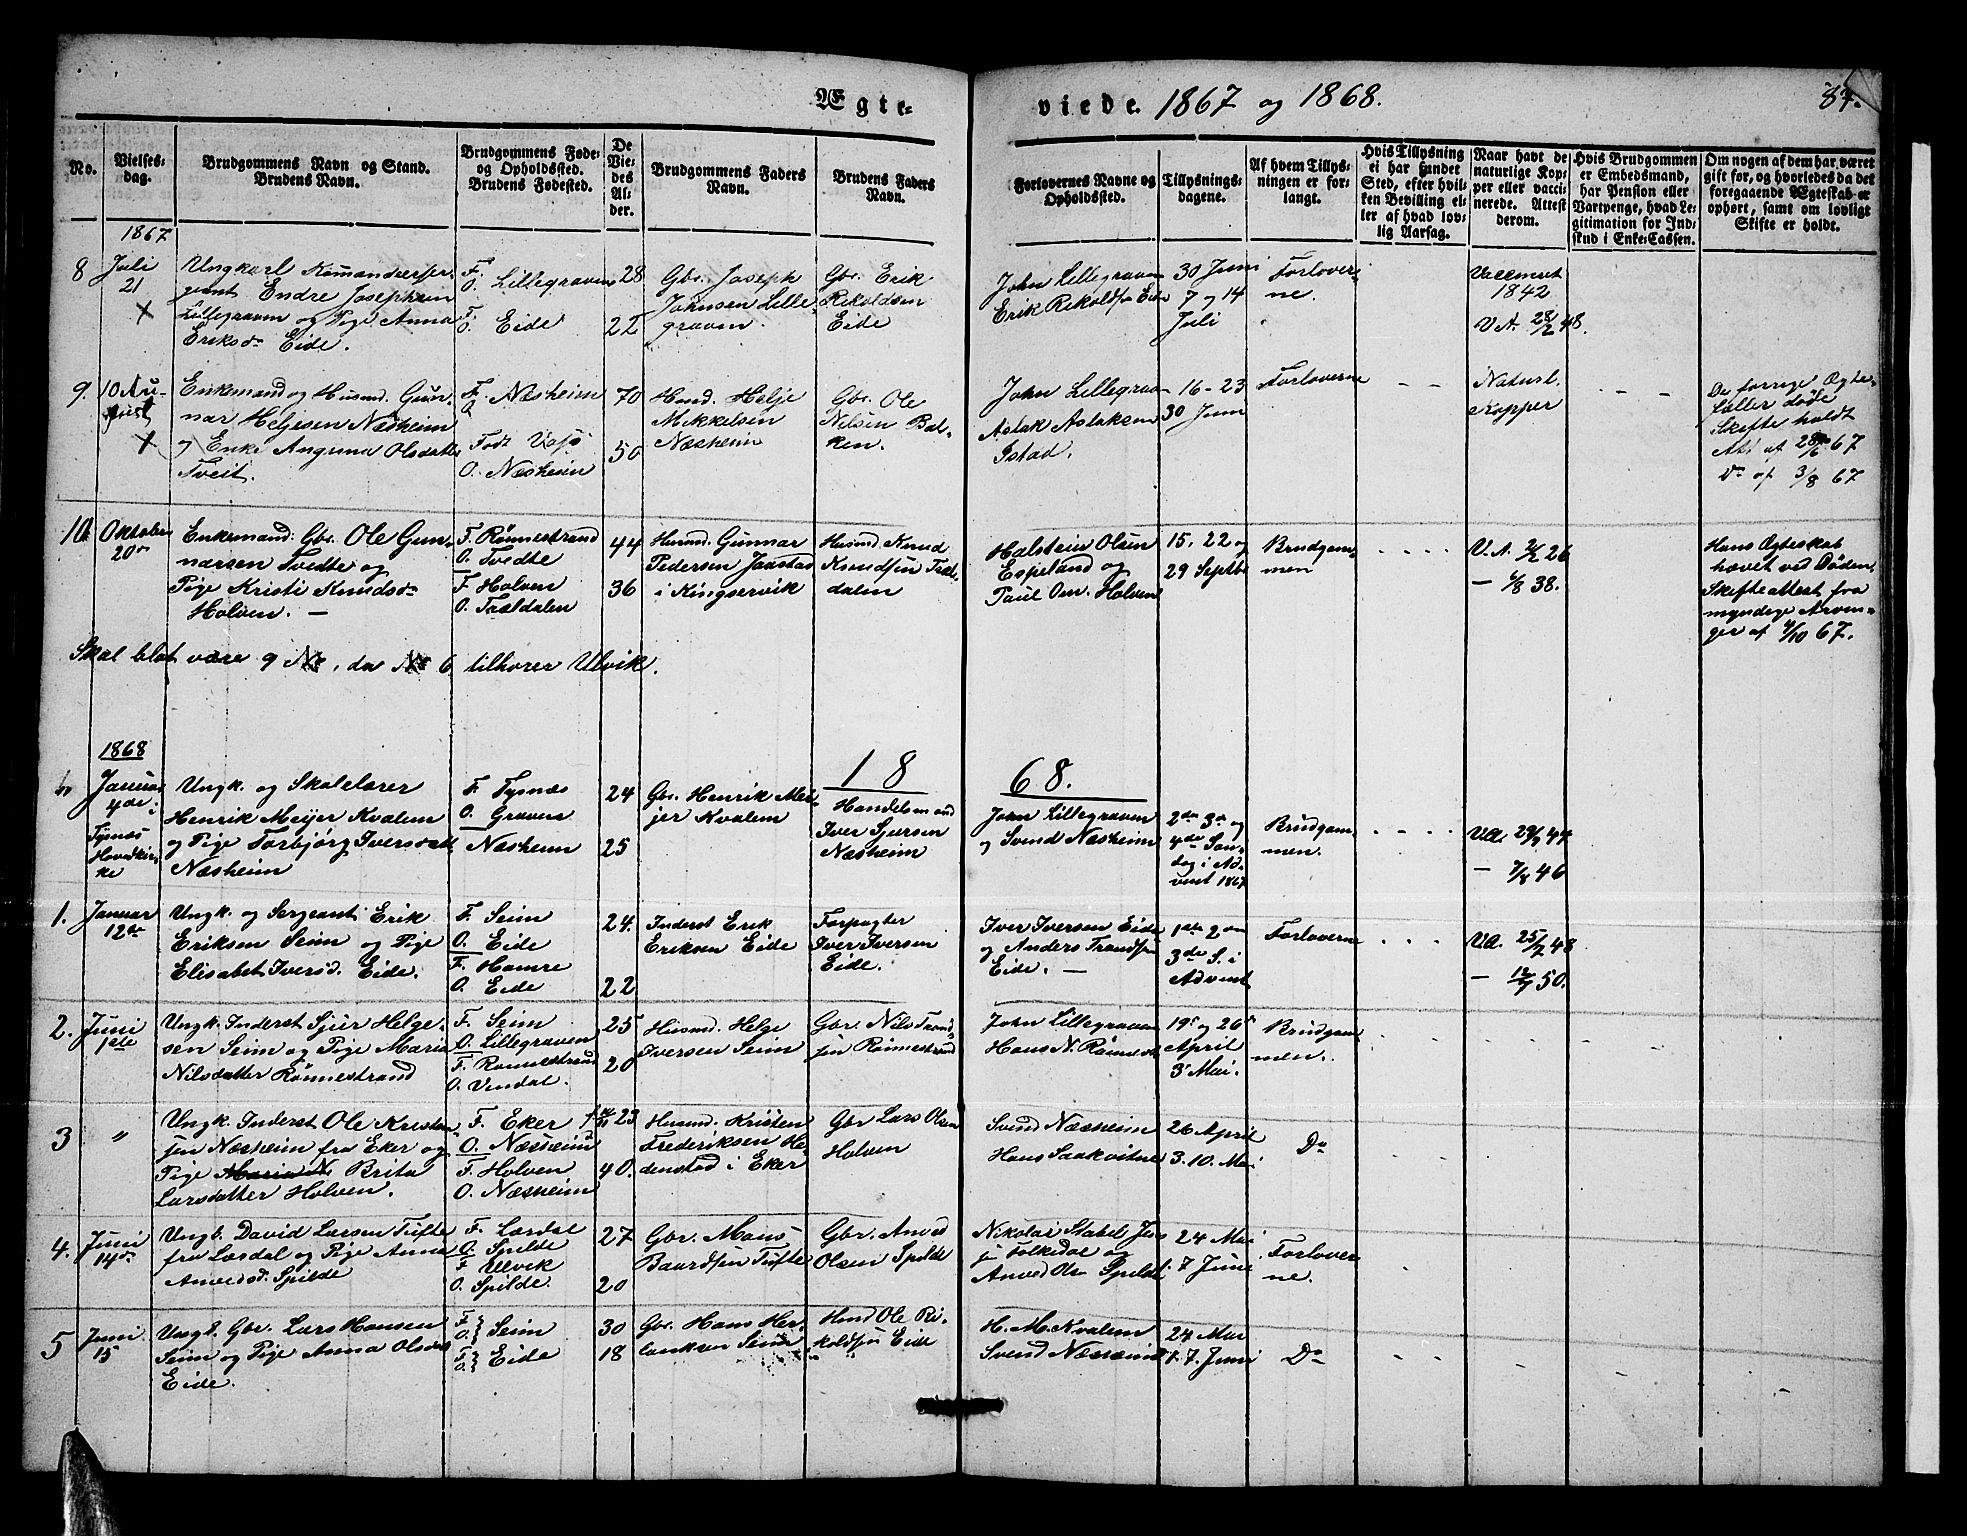 Ægte-
viede 1867 og 1868.
87.
No.
Vielses-
dag.
Brudgommens Navn og Stand.
Brudens Navn.
Brudgommens Føde-
og Opholdssted.
Brudens Fødested.
De
Vie-
des
Al-
der.
Brudgommens Faders
Navn.
Brudens Faders
Navn.
Forlovernes Navne og
Opholdssted.
Tillysnings-
dagene.
Af hvem Tillys-
ningen er for-
langt.
Hvis Tillysning
ei har fundet
Sted, efter hvil-
ken Bevilling el-
ler af hvad lov-
lig Aarsag.
Naar havt de
naturlige Kop-
per eller vacci-
nerede. Attest
derom.
Hvis Brudgommen
er Embedsmand,
har Pension eller
Vartpenge, hvad Le-
gitimation for Ind-
skud i Enke-Cassen.
Om nogen af dem har været
gift før, og hvorledes da det
foregaaende Ægteskab er
ophørt, samt om lovligt
Skifte er holdt.
1867
8
Juli
21
Ungkarl Komandeerser-
geant Endre Josephsen
Lillegraven og Pige Anna
Eriksd. Eide.
F.
O. Lillegraven
F.
O. Eide
28
22
Gbr. Joseph
Johnsen Lille-
graven.
Gbr. Erik
Rikoldsen
Eide
John Lillegraven
Erik Rikolds. Eide
30 Juni
7 og 14
Juli
Forlover-
ne.
Vaccineret
1842
V.A. 28/2 48.
9.
10 Au-
gust
Enkemand og Husmd. Gun-
nar Heljesen Næsheim
og Enke Angunna Olsdatter
Tveit.
F. Næsheim
O.
Født Voss
O. Næsheim
70
50
Husmd. Helje
Mikkelsen
Næsheim
Gbr. Ole
Nilsen Bak-
ken.
John Lillegraven
Aslak Aslaksen
Istad.
16 - 23
30 Juni
Forloverne
Naturl.
Kopper
De forrige Ægte-
fæller døde
Skifte holdt
Att af 28/6 67
Do af 3/8 67
10
Oktober
20de
Enkemand Gbr. Ole Gun-
narsen Tvedte og
Pige Kristi Knudsd.
Holven. —
F. Rønnestrand
O. Tvedte
F. Holven
O. Trældalen
44
36
Husmd. Gunnar
Pedersen Jaastad
i Kingservik
Husmd Knud
Knudsen Træl-
dalen
Halstein Olsen
Espeland og
Paul Om. Holven
15, 22 og
29 Septbr
Brudgom-
men
V.A. 2/2 26
— 6/8 38.
Hans Ægteskab
hævet ved Døden,
Skifteattest fra
myndige Arvin-
ger af 4/10 67.
Skal blot være 9 No, da No 6 tilhører Ulvik.
1868
1868.
Januar
4de
Tysnæs
Hovedkir-
ke
Ungk. og Skolelærer
Henrik Meijer Kvalem
og Pige Torbjørg Iversdatt.
Næsheim
F. Tysnæs
O. Graven
Næsheim
24
25
Gbr. Henrik Mei-
jer Kvalem
Handelsmand
Iver Sjursen
Næsheim
John Lillegraven
og Svend Næsheim
2den 3de og
4de Søn-
dag i Ad-
vent 1867
Brudgom-
men.
V.A. 29/7 44
— 7/8 46
1.
Januar
12te
Ungk. og Sergeant Erik
Eriksen Seim og Pige
Elisabet Iversd. Eide.
F. Seim
O. Eide
F. Hamre
O. Eide
24.
22
Inderst Erik
Eriksen Eide
Forpagter
Iver Iversen
Eide.
Iver Iversen Eide
og Anders Trondsen
Eide. —
1ste 2den
3de S. i
Advent
Forloverne
V.A. 25/7 48
— 12/7 50.
2.
Juni
1ste
Ungk. Inderst Sjur Helge-
sen Seim og Pige Maria
Nilsdatter Rønnestrand
F. Seim
O. Lillegraven
F. Rønnestrand
O. Vindal.
25
20
Husmd. Helge
Iversen Seim
Gbr. Nils Trond-
sen Rønnestrand
John Lillegraven
Hans N. Rønnestr.
19de og 26de
April
3de Mai.
Brudgom-
men.
3
"
Ungk. Inderst Ole Kristen-
sen Næsheim fra Eker og
Pige Maria N. Brita
Larsdatter Holven.
F. Eker
O. Næsheim
F. Holven
O. Næsheim
23
40.
Husmd. Kristen
Frederiksen He-
denstad i Eker
Gbr Lars Olsen
Holven
Svend Næsheim
Hans Saakvitne
26 April
3. 10. Mai
Do
4.
Juni
14de
Ungk. David Larsen Tufte
fra Lærdal og Pige Anna
Anvedsd. Spilde
F. Lærdal
O. Spilde
F Ulvik
O. Spilde.
27
20
Gbr. Mons
Baardsen Tufte
Gbr. Anved
Olsen Spilde
Nikolai Stabel Jen-
s. Folkedal og
Anved Ols. Spilde
24 Mai
7 Juni
Forlover-
ne.
5
Juni
15
Ungk. Gbr. Lars Hansen
Seim og Pige Anna Olsd.
Eide.
F.
O. Seim
F.
O. Eide
30
18
Gbr. Hans Her-
lauksen Seim
Husmd Ole Ri-
koldsen Eide
H. M. Kvalem
Svend Næsheim
24 Mai
7. Juni
Do